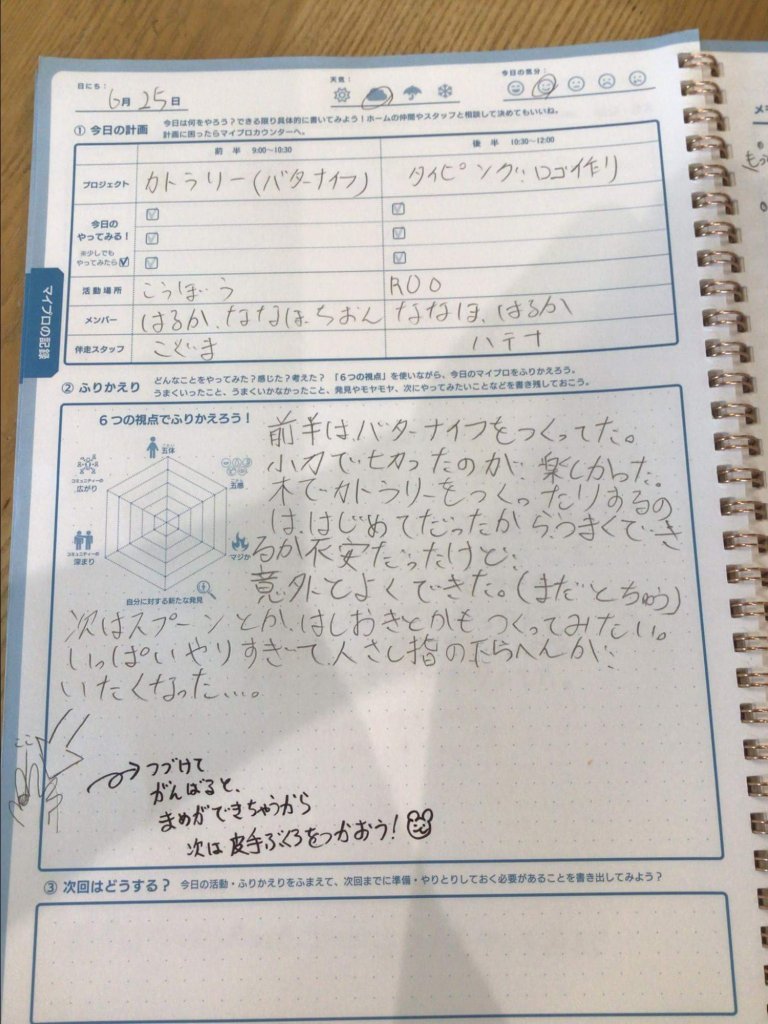 日にち：
6月25日
天気：
今日の気分：
① 今日の計画
今日は何をやろう？できる限り具体的に書いてみよう！ホームの仲間やスタッフと相談して決めてもいいね。
計画に困ったらマイプロカウンターへ。
前 半 9:00～10:30
後 半 10:30～12:00
プロジェクト
カトラリー(バターナイフ)
タイピング、ロゴ作り
今日の
やってみる！
※少しでも
やってみたら
活動場所
こうぼう
ROO
メンバー
はるか、ななほ、ちおん
ななほ、はるか
伴走スタッフ
こぐま
ハテナ
マイプロの記録
② ふりかえり
どんなことをやってみた？感じた？考えた？ 「6つの視点」を使いながら、今日のマイプロをふりかえろう。
うまくいったこと、うまくいかなかったこと、発見やモヤモヤ、次にやってみたいことなどを書き残しておこう。
6つの視点でふりかえろう！
五体
五感
マジか
自分に対する新たな発見
コミュニティーの
深まり
コミュニティーの
広がり
前半は、バターナイフをつくってた。
小刀で切ったのが楽しかった。
木でカトラリーをつくったりするの
は、はじめてだったから、うまくでき
るか不安だったけど、
意外とよくできた。(まだとちゅう)
次はスプーンとか、はしおきとかもつくってみたい。
いっぱいやりすぎて、人さし指の下らへんが
いたくなった…。
つづけて
がんばると、
まめができちゃうから
次は皮手ぶくろをつかおう！
③ 次回はどうする？
今日の活動・ふりかえりをふまえて、次回までに準備・やりとりしておく必要があることを書き出してみよう？